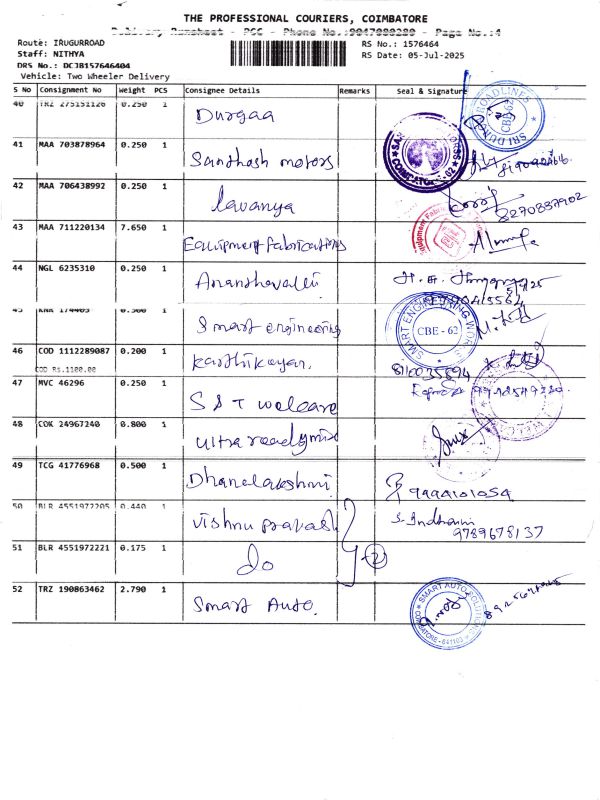 THE PROFESSIONAL COURIERS, COIMBATORE
Delivery Runsheet - PCC - Phone No.:9047000280 - Page No.:4
Route: IRUGURROAD
Staff: NITHYA
DRS No.: DCJB157646404
Vehicle: Two Wheeler Delivery
RS No.: 1576464
RS Date: 05-Jul-2025
S No Consignment No Weight PCS Consignee Details Remarks Seal & Signature
40 TRZ 275151126 0.250 1 Durgaa
SRI DURGA ROADLINES CBE-62
41 MAA 703878964 0.250 1 Santhash motors
42 MAA 706438992 0.250 1 lavanya 8270887902
43 MAA 711220134 7.650 1 Equipment fabrications
44 NGL 6235310 0.250 1 Ananthavalli
45 KNR 174405 0.500 1 Smart engineering
SMART ENGINEERING WORKS CBE - 62
46 COD 1112289087 0.200 1 karthikayan.
COD Rs.1100.00
8110035894
47 MVC 46296 0.250 1 S S T welcare
48 COK 24967240 0.800 1 ultra readymix
49 TCG 41776968 0.500 1 Dhanalakshmi 9994101054
50 BLR 4551972205 0.440 1 vishnu prakash S. Indhrani
9789678137
51 BLR 4551972221 0.175 1 do 2
52 TRZ 190863462 2.790 1 Smart Auto.
SMART AUTO SOLUTIONS COIMBATORE - 641103